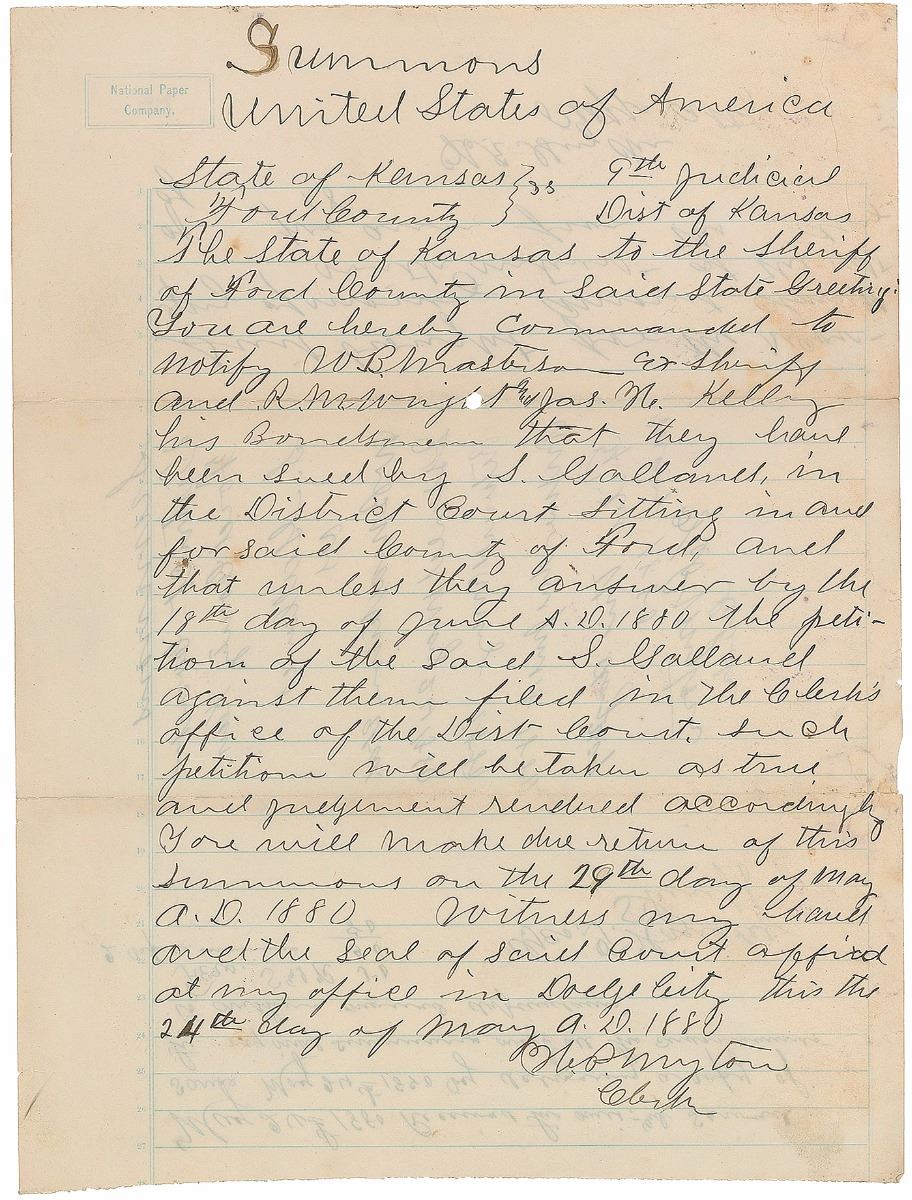 Summons
National Paper
Company.
United States of America
State of Kansas } ss 9th Judicial
Ford County } Dist of Kansas
The State of Kansas to the Sheriff
of Ford County in Said State Greeting:
You are hereby Commanded to
notify W B Masterson ex Sheriff
and R. M. Wright and Jas. H. Kelly
his Bondsmen that they have
been sued by S. Galland, in
the District Court sitting in and
for said County of Ford, and
that unless they answer by the
18th day of June A.D. 1880 the peti-
tion of the said S. Galland
against them filed in the Clerk's
office of the Dist Court. such
petition will be taken as true
and judgement rendered accordingly
You will make due return of this
summons on the 29th day of May
A.D. 1880 Witness my hand
and the seal of said Court affixed
at my office in Dodge City this the
24th day of May A.D. 1880
H. P. Myton
Clerk